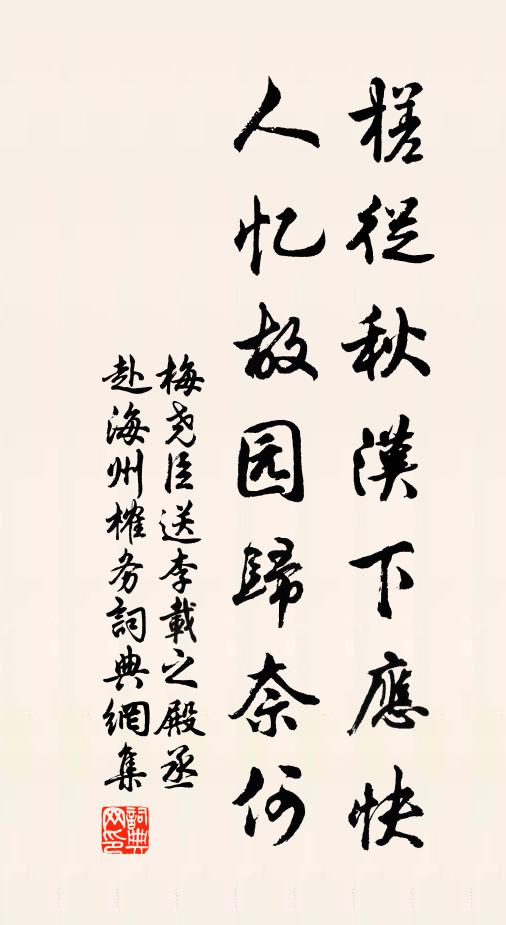 槎從秋漢下應快
人忆故园歸奈何
梅尧臣送李載之殿丞
赴海州榷务詞典網集
詞典网印